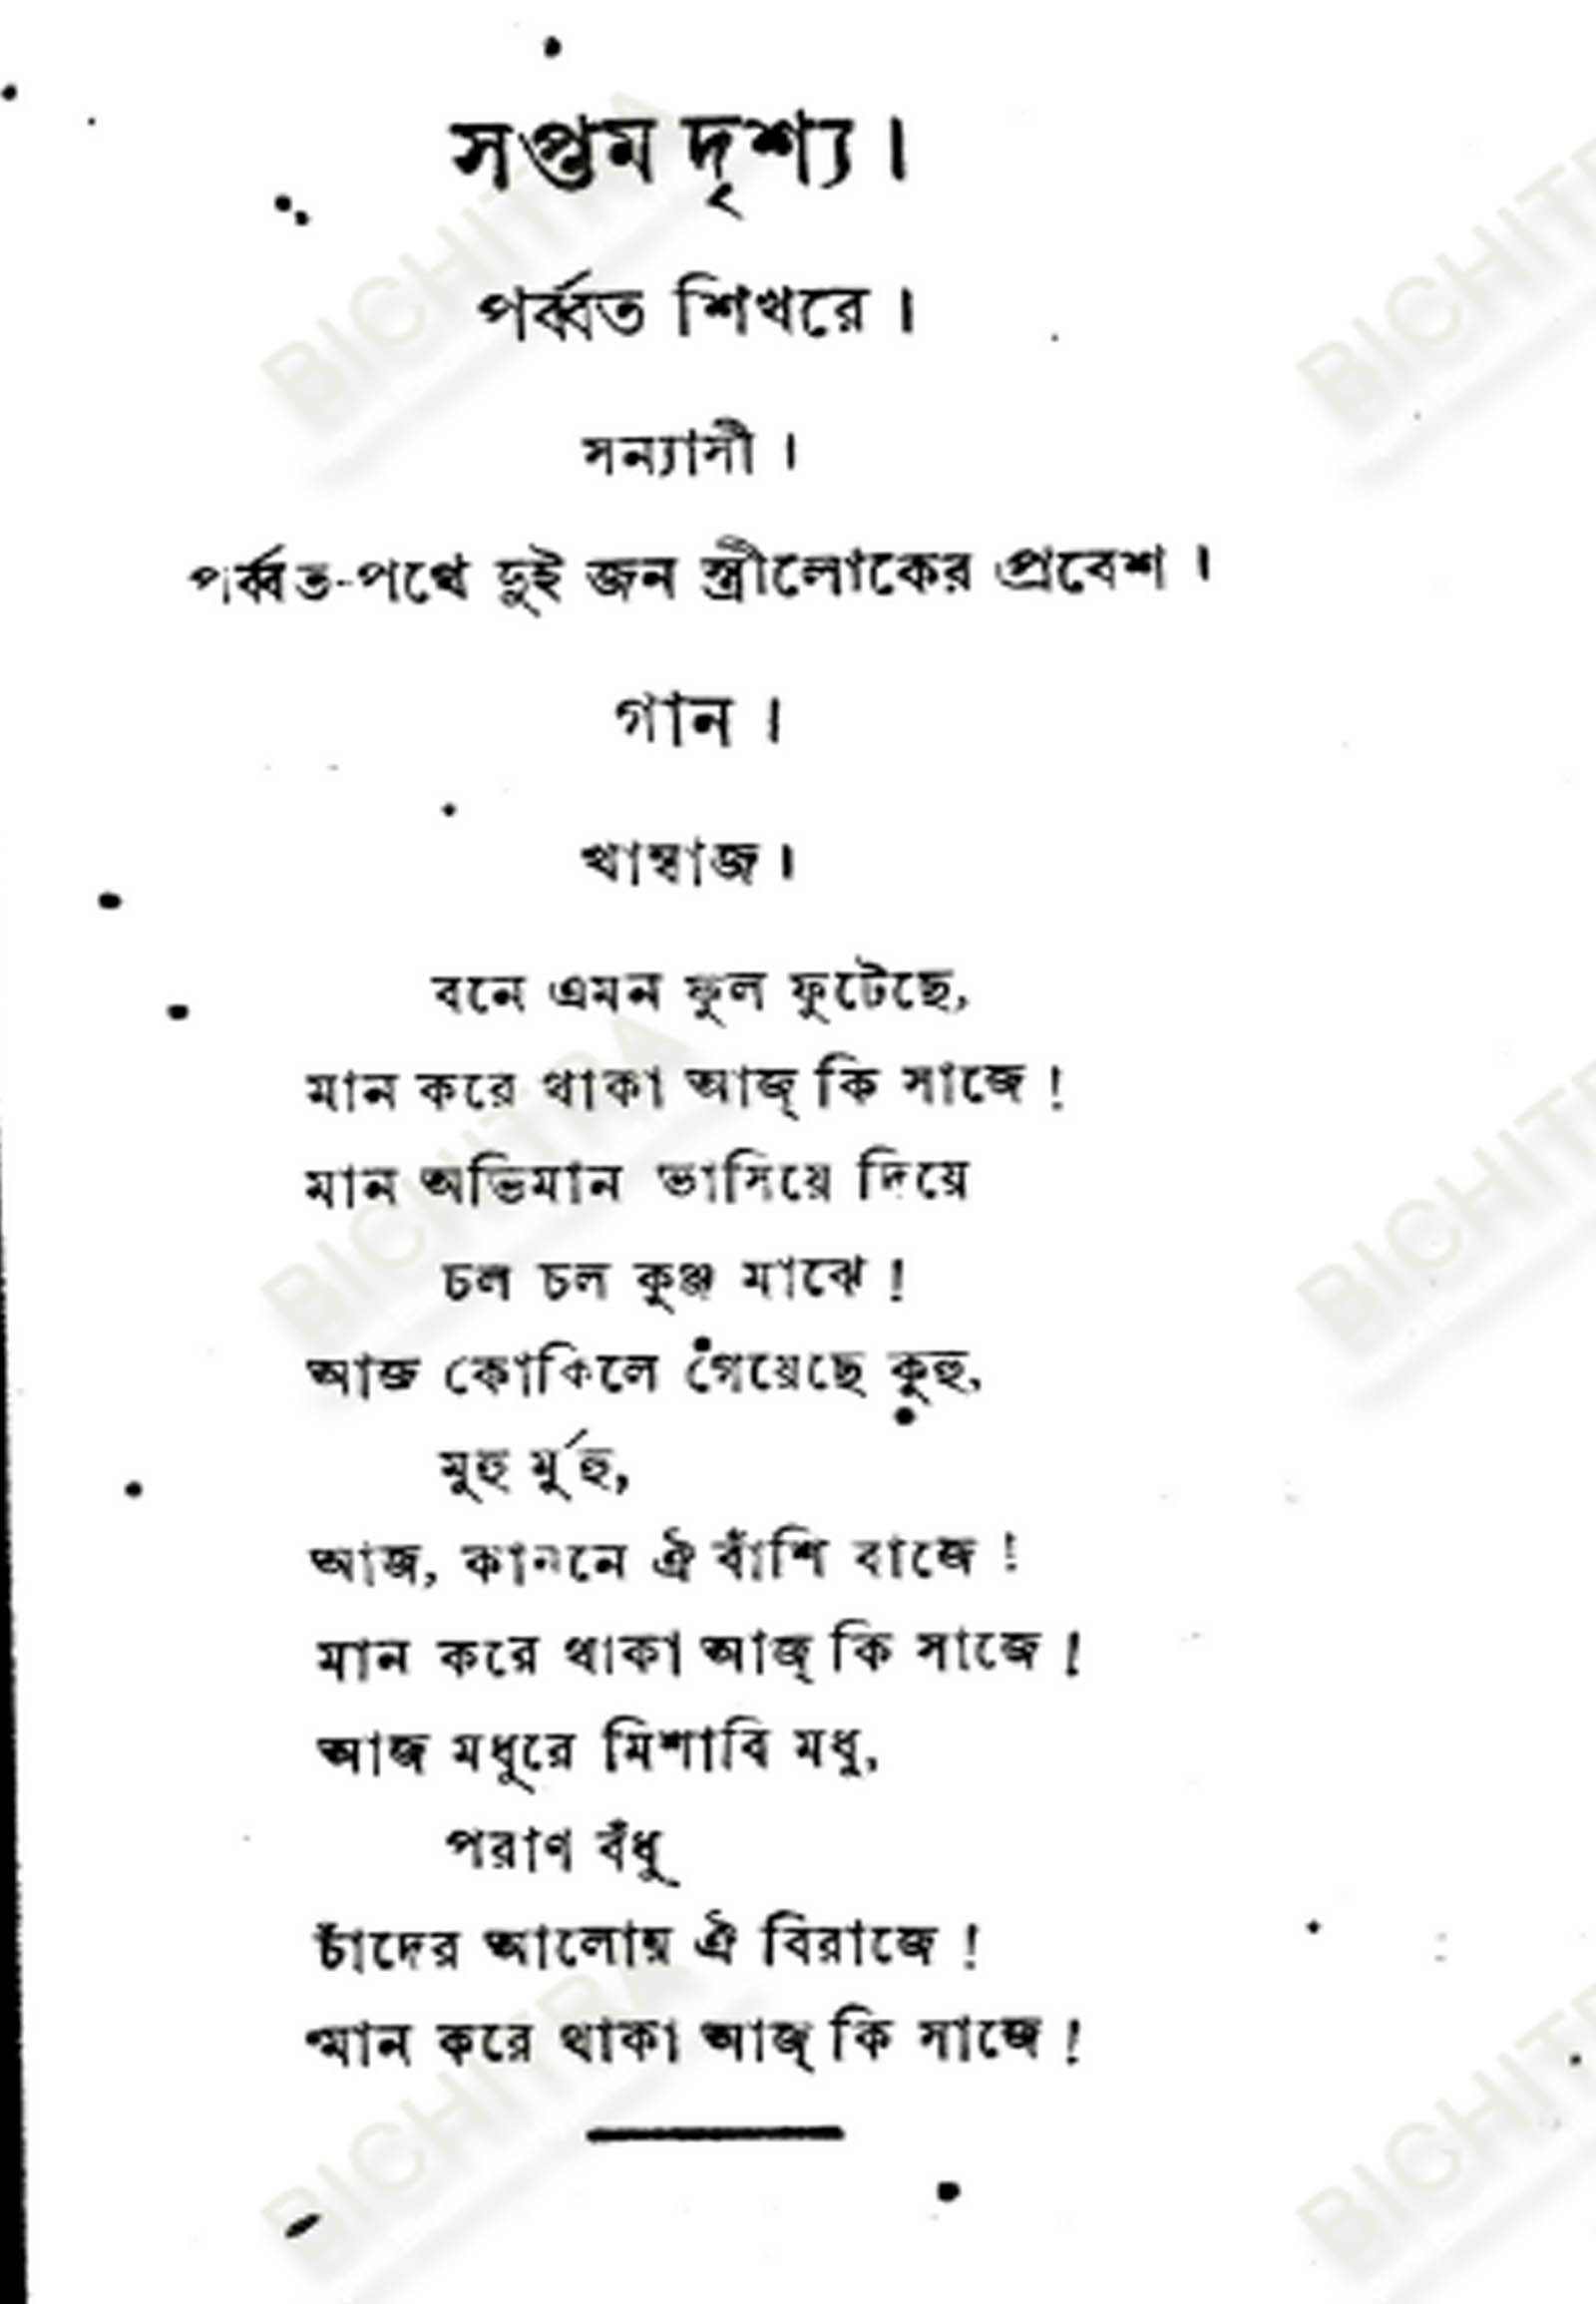 সপ্তম দৃশ্য।
পর্ব্বত শিখরে।
সন্যাসী।
পর্ব্বত-পথে দুই জন স্ত্রীলোকের প্রবেশ।
গান।
খাম্বাজ।
বনে এমন ফুল ফুটেছে,
মান করে থাকা আজ্ কি সাজে!
মান অভিমান ভাসিয়ে দিয়ে
চল চল কুঞ্জ মাঝে!
আজ কোকিলে গেয়েছে কুহু,
মুহু র্মুহু,
আজ, কাননে ঐ বাঁশি বাজে!
মান করে থাকা আজ্ কি সাজে!
আজ মধুরে মিশাবি মধু,
পরাণ বঁধু
চাঁদের আলোয় ঐ বিরাজে!
মান করে থাকা আজ্ কি সাজে!
BICHITRA